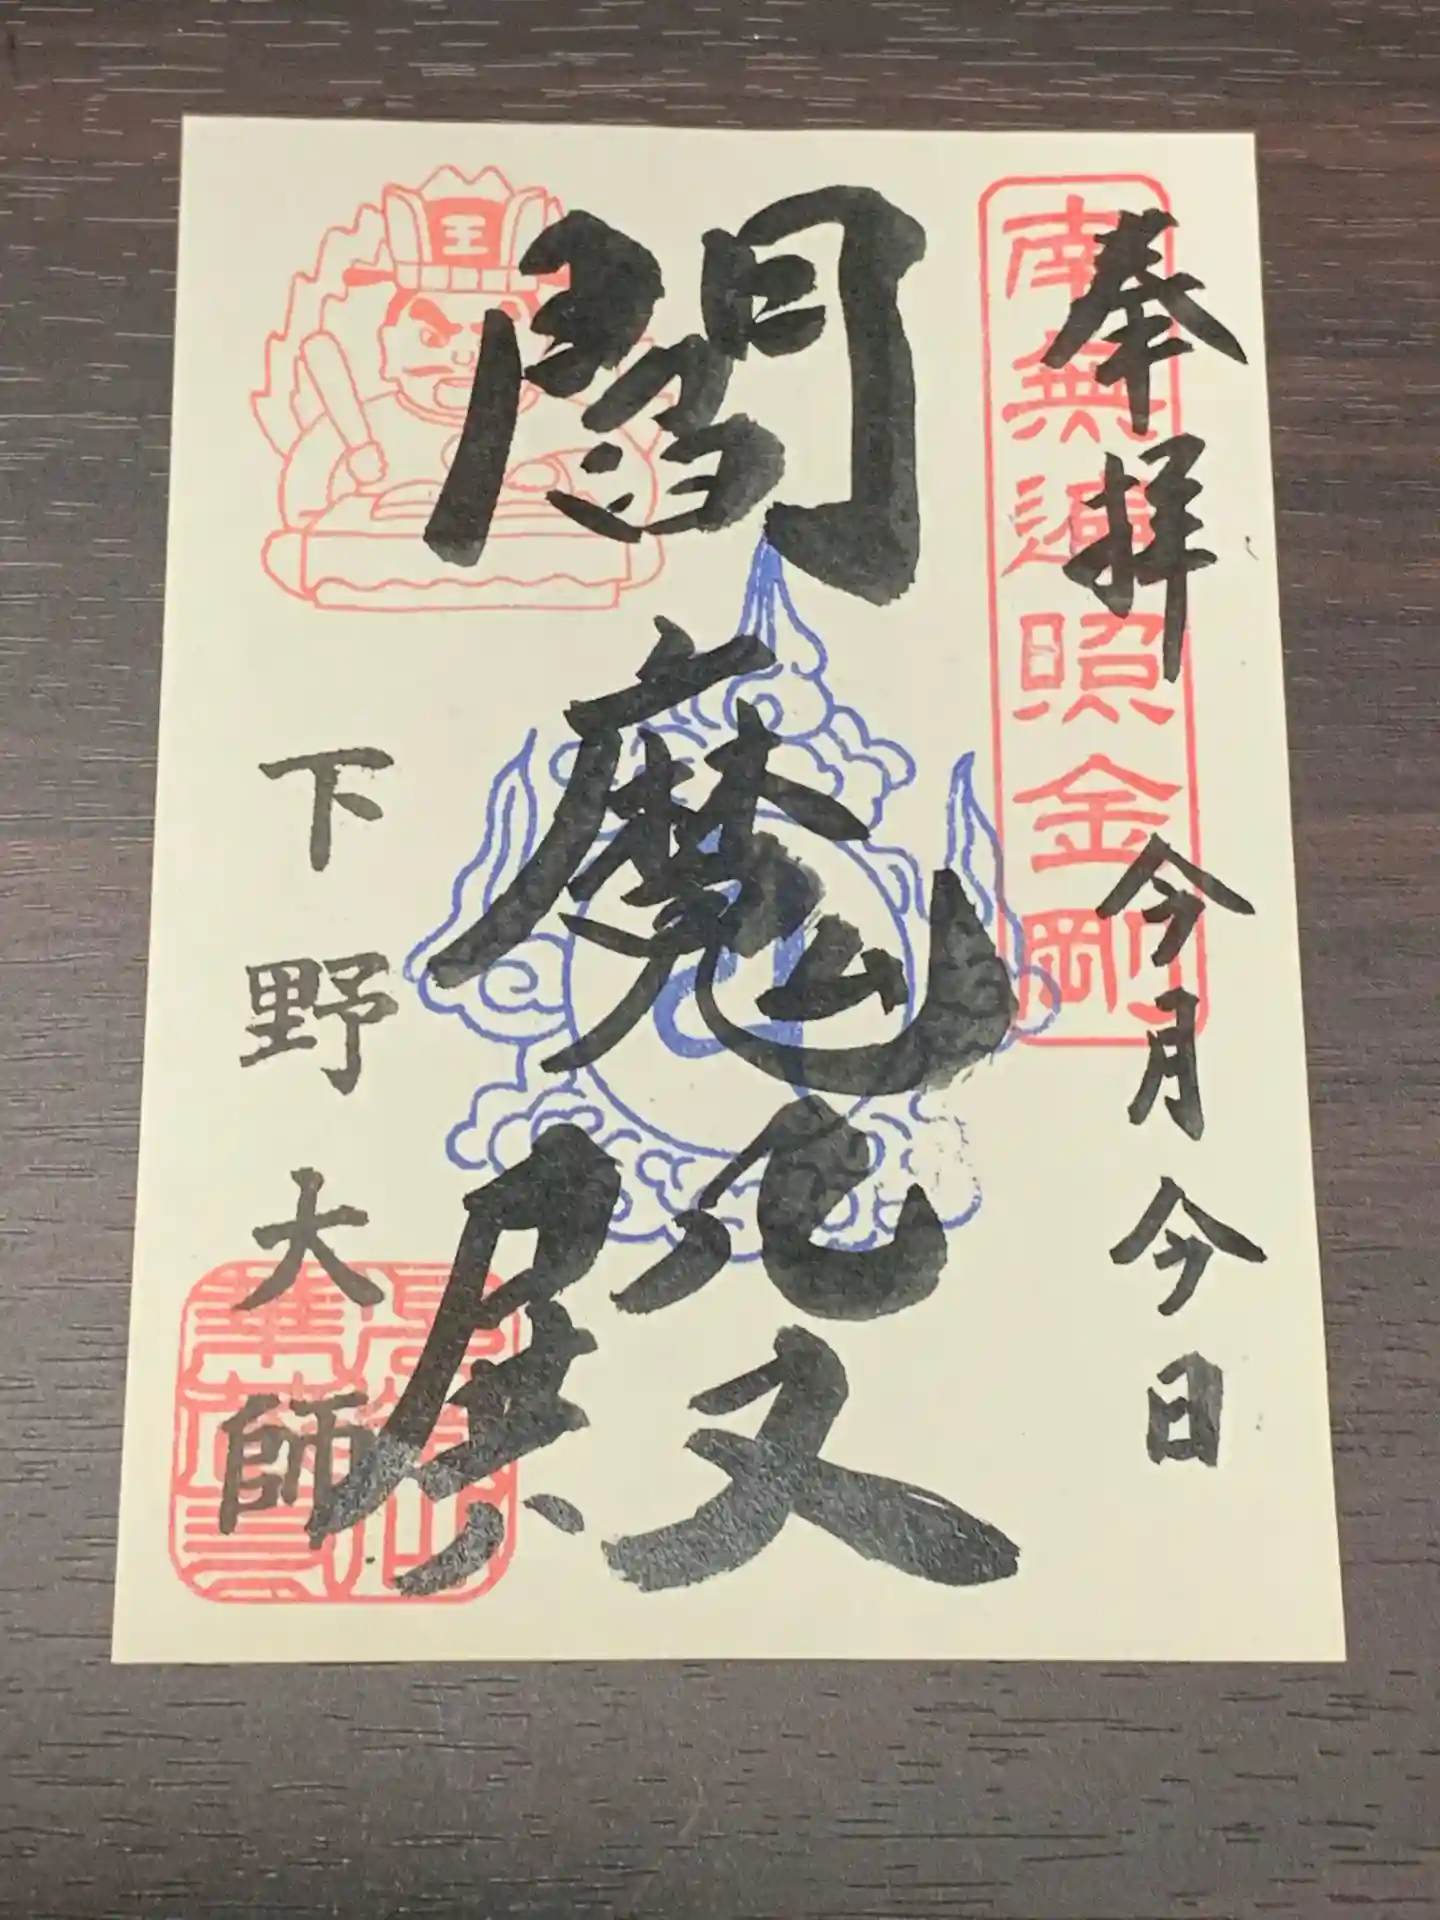 奉拝 今月今日
南無遍照金剛
閻魔殿
王
下野大師
華蔵